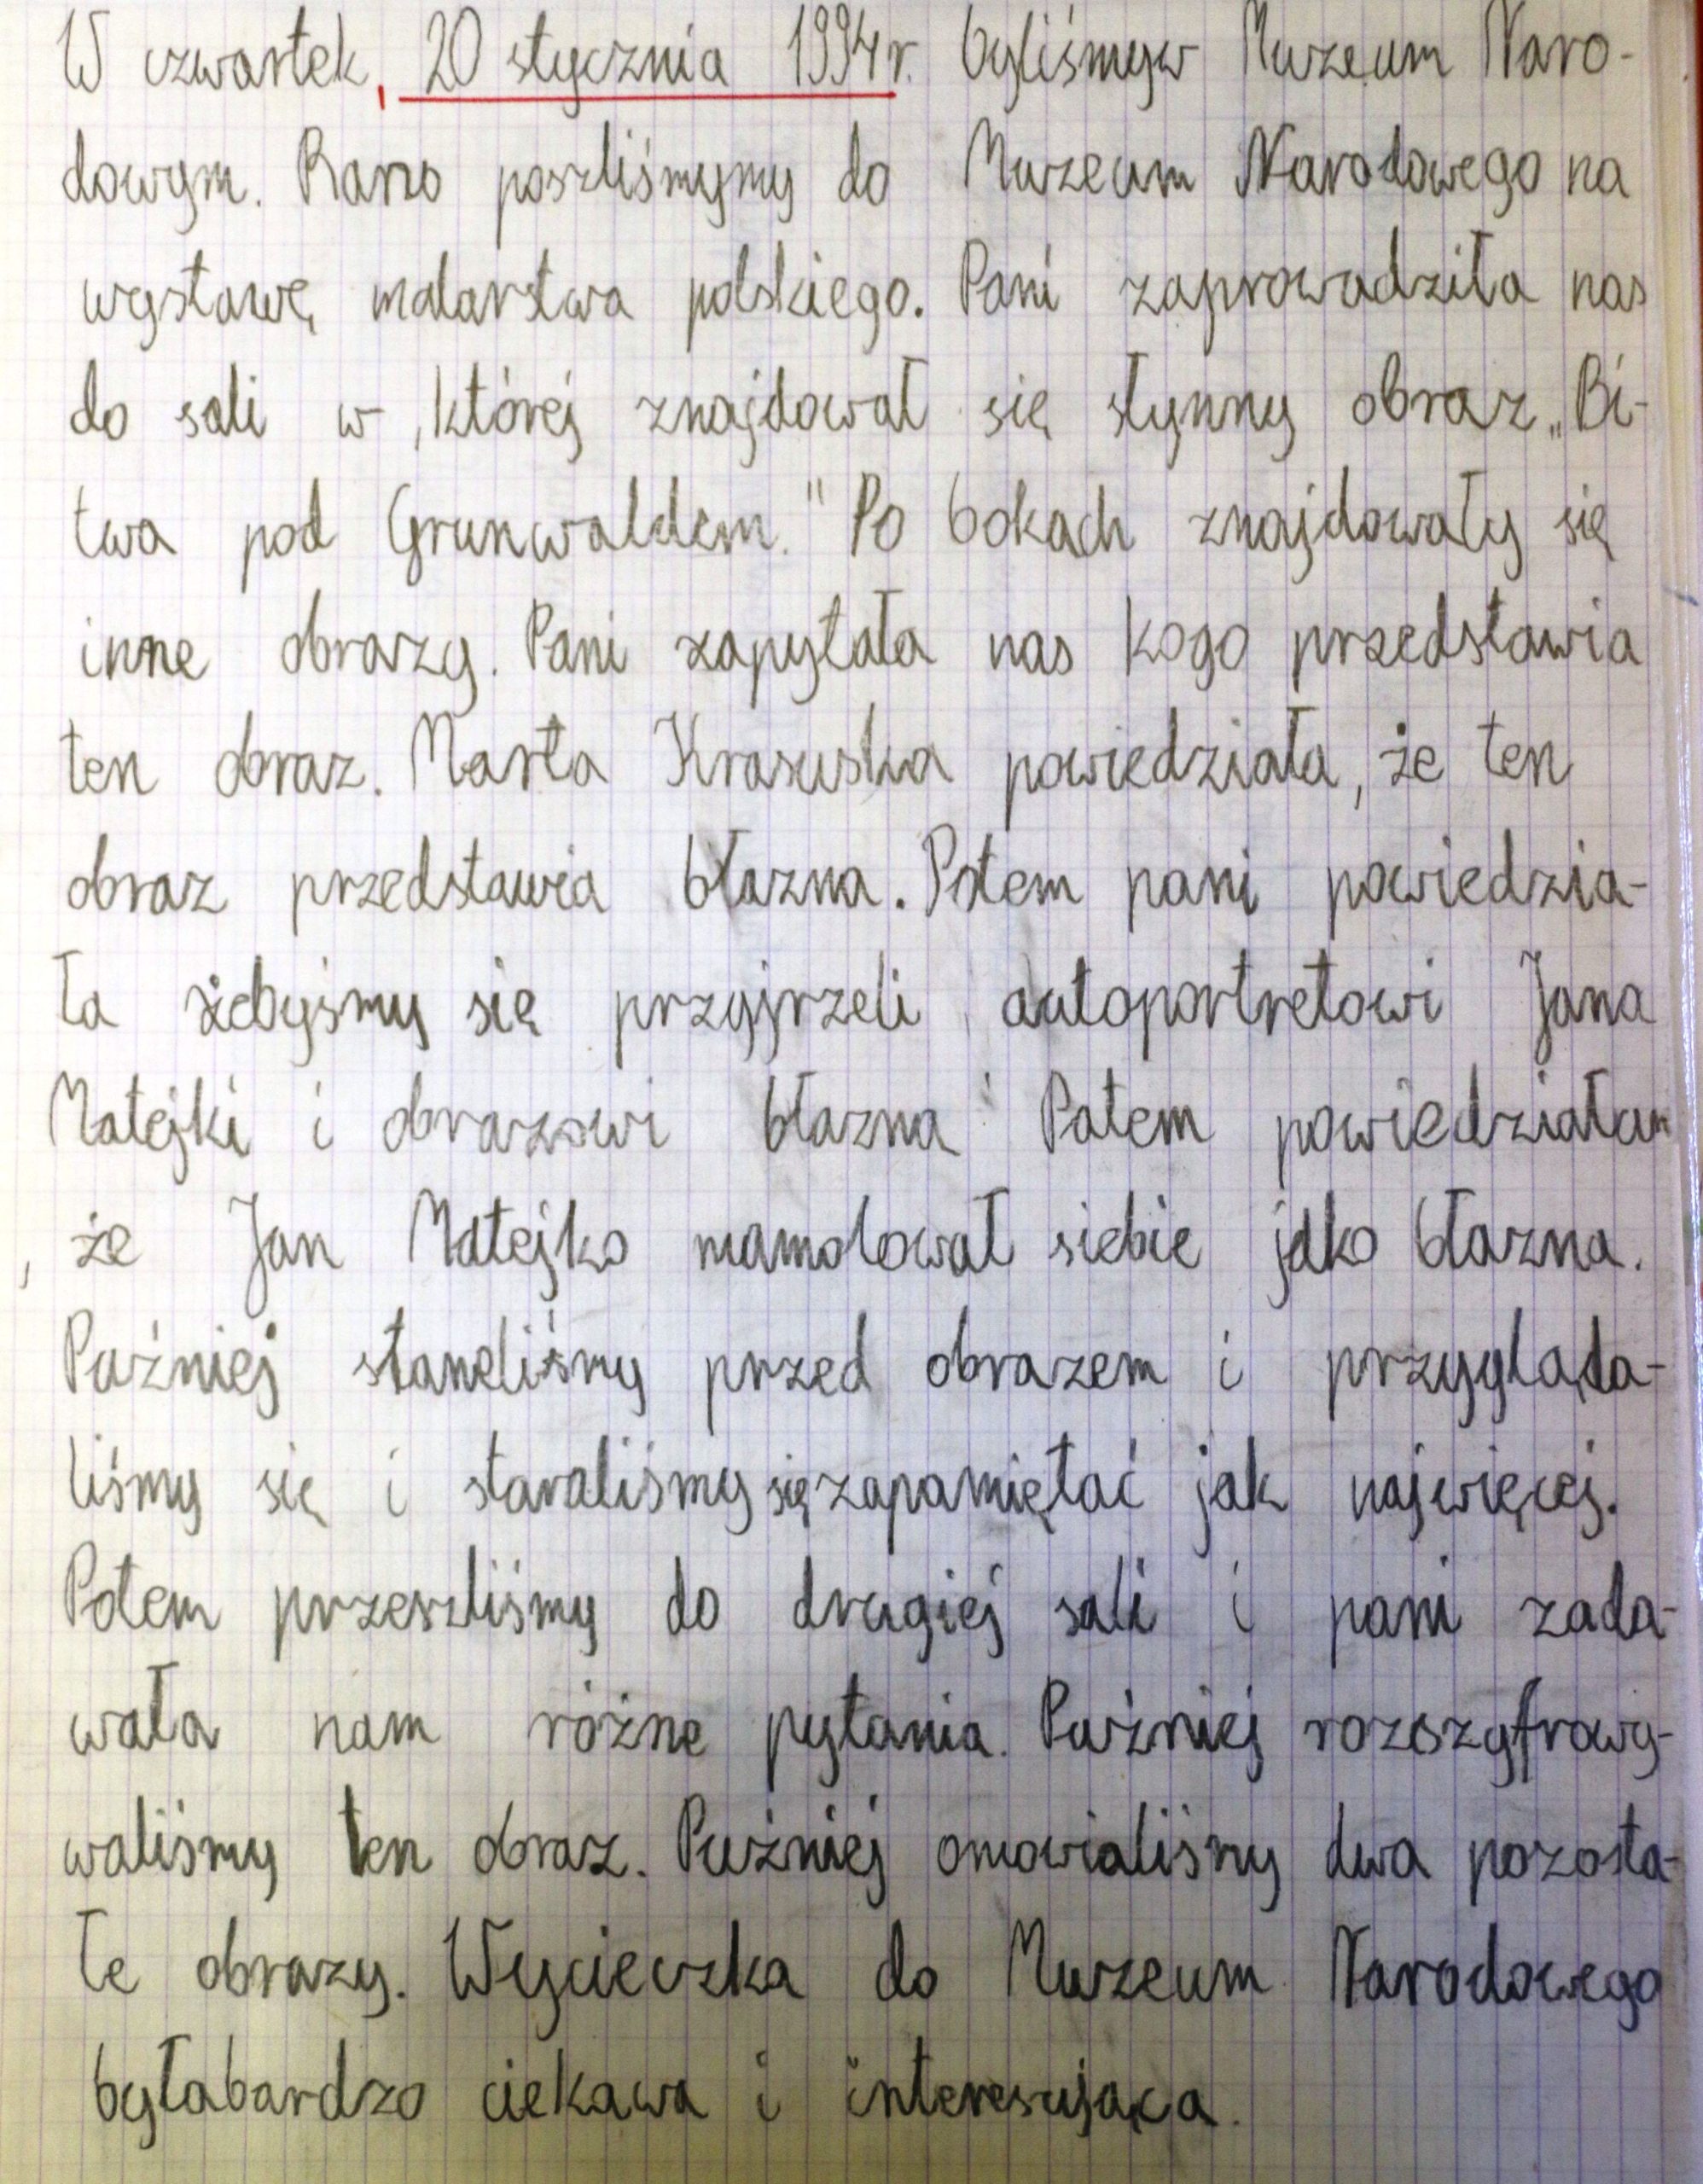 W czwartek, 20 stycznia 1994r. byliśmyw Muzeum Naro-
dowym. Rano poszliśmymy do Muzeum Narodowego na
wystawę malarstwa polskiego. Pani zaprowadziła nas
do sali w ,której znajdował się słynny obraz „Bi-
twa pod Grunwaldem." Po bokach znajdowały się
inne obrazy. Pani zapytała nas kogo przedstawia
ten obraz. Marta Krasuska powiedziała, że ten
obraz przedstawia błazna. Potem pani powiedzia-
ła żebyśmy się przyjrzeli autoportretowi Jana
Matejki i obrazowi błazna. Potem powiedziałam
, że Jan Matejko namalował siebie jako błazna.
Puźniej staneliśmy przed obrazem i przygląda-
liśmy się i staraliśmy się zapamiętać jak najwięcej.
Potem przeszliśmy do drugiej sali i pani zada-
wała nam różne pytania. Puźniej rozszyfrowy-
waliśmy ten obraz. Puźniej omowialiśmy dwa pozosta-
łe obrazy. Wycieczka do Muzeum Narodowego
byłabardzo ciekawa i interesująca.